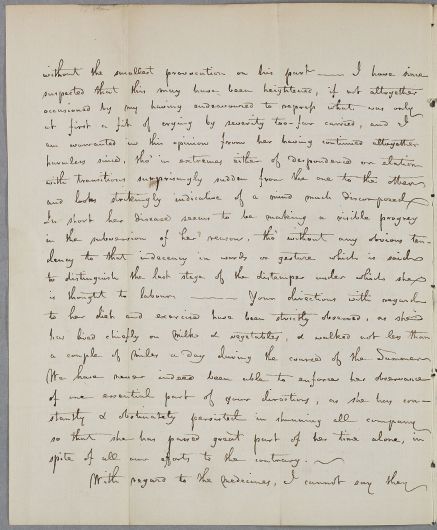 without the smallest provocation on his part —— I have since
suspected that this may have been heightened, if not altogether
occasioned by my having endeavoured to repress what was only
at first a fit of crying by severity too far carried, and I
am warranted in this opinion from her having continued altogether
harmless since, tho' in extremes either of despondence or elation
with transitions surprisingly sudden from the one to the other
and looks strikingly indicative of a mind much discomposed
In short her disease seems to be making a visible progress
in the subversion of her reason, tho' without any obvious ten-
dency to that indecency in words or gesture which is said
to distinguish the last stage of the distemper under which she
is thought to labour. —— Your directions with regard
to her diet and exercise have been strictly observed, as she
has lived chiefly on milk & vegetables, & walked not less than
a couple of miles a day during the course of the Summer
We have never indeed been able to enforce her observance
of one essential part of your directions, as she has con-
stantly & obstinately persisted in shunning all company
so that she has passed great part of her time alone, in
spite of all our efforts to the contrary. —
With regard to the medicines, I cannot say they